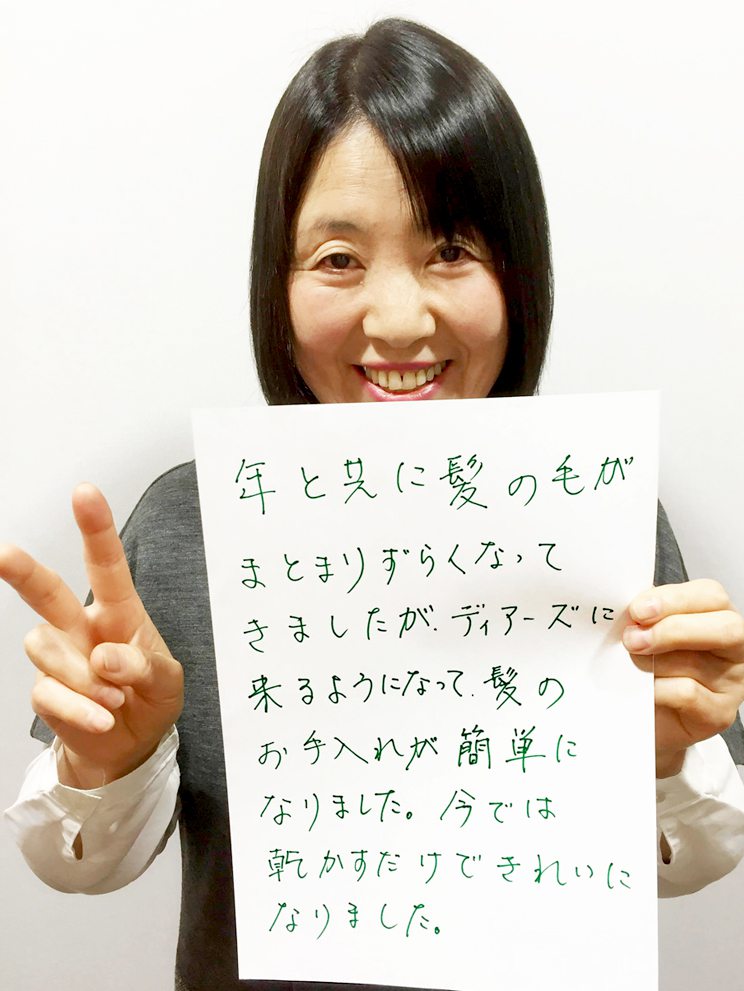 年と共に髪の毛が
まとまりずらくなって
きましたが、ディアーズに
来るようになって、髪の
お手入れが簡単に
なりました。今では
乾かすだけできれいに
なりました。